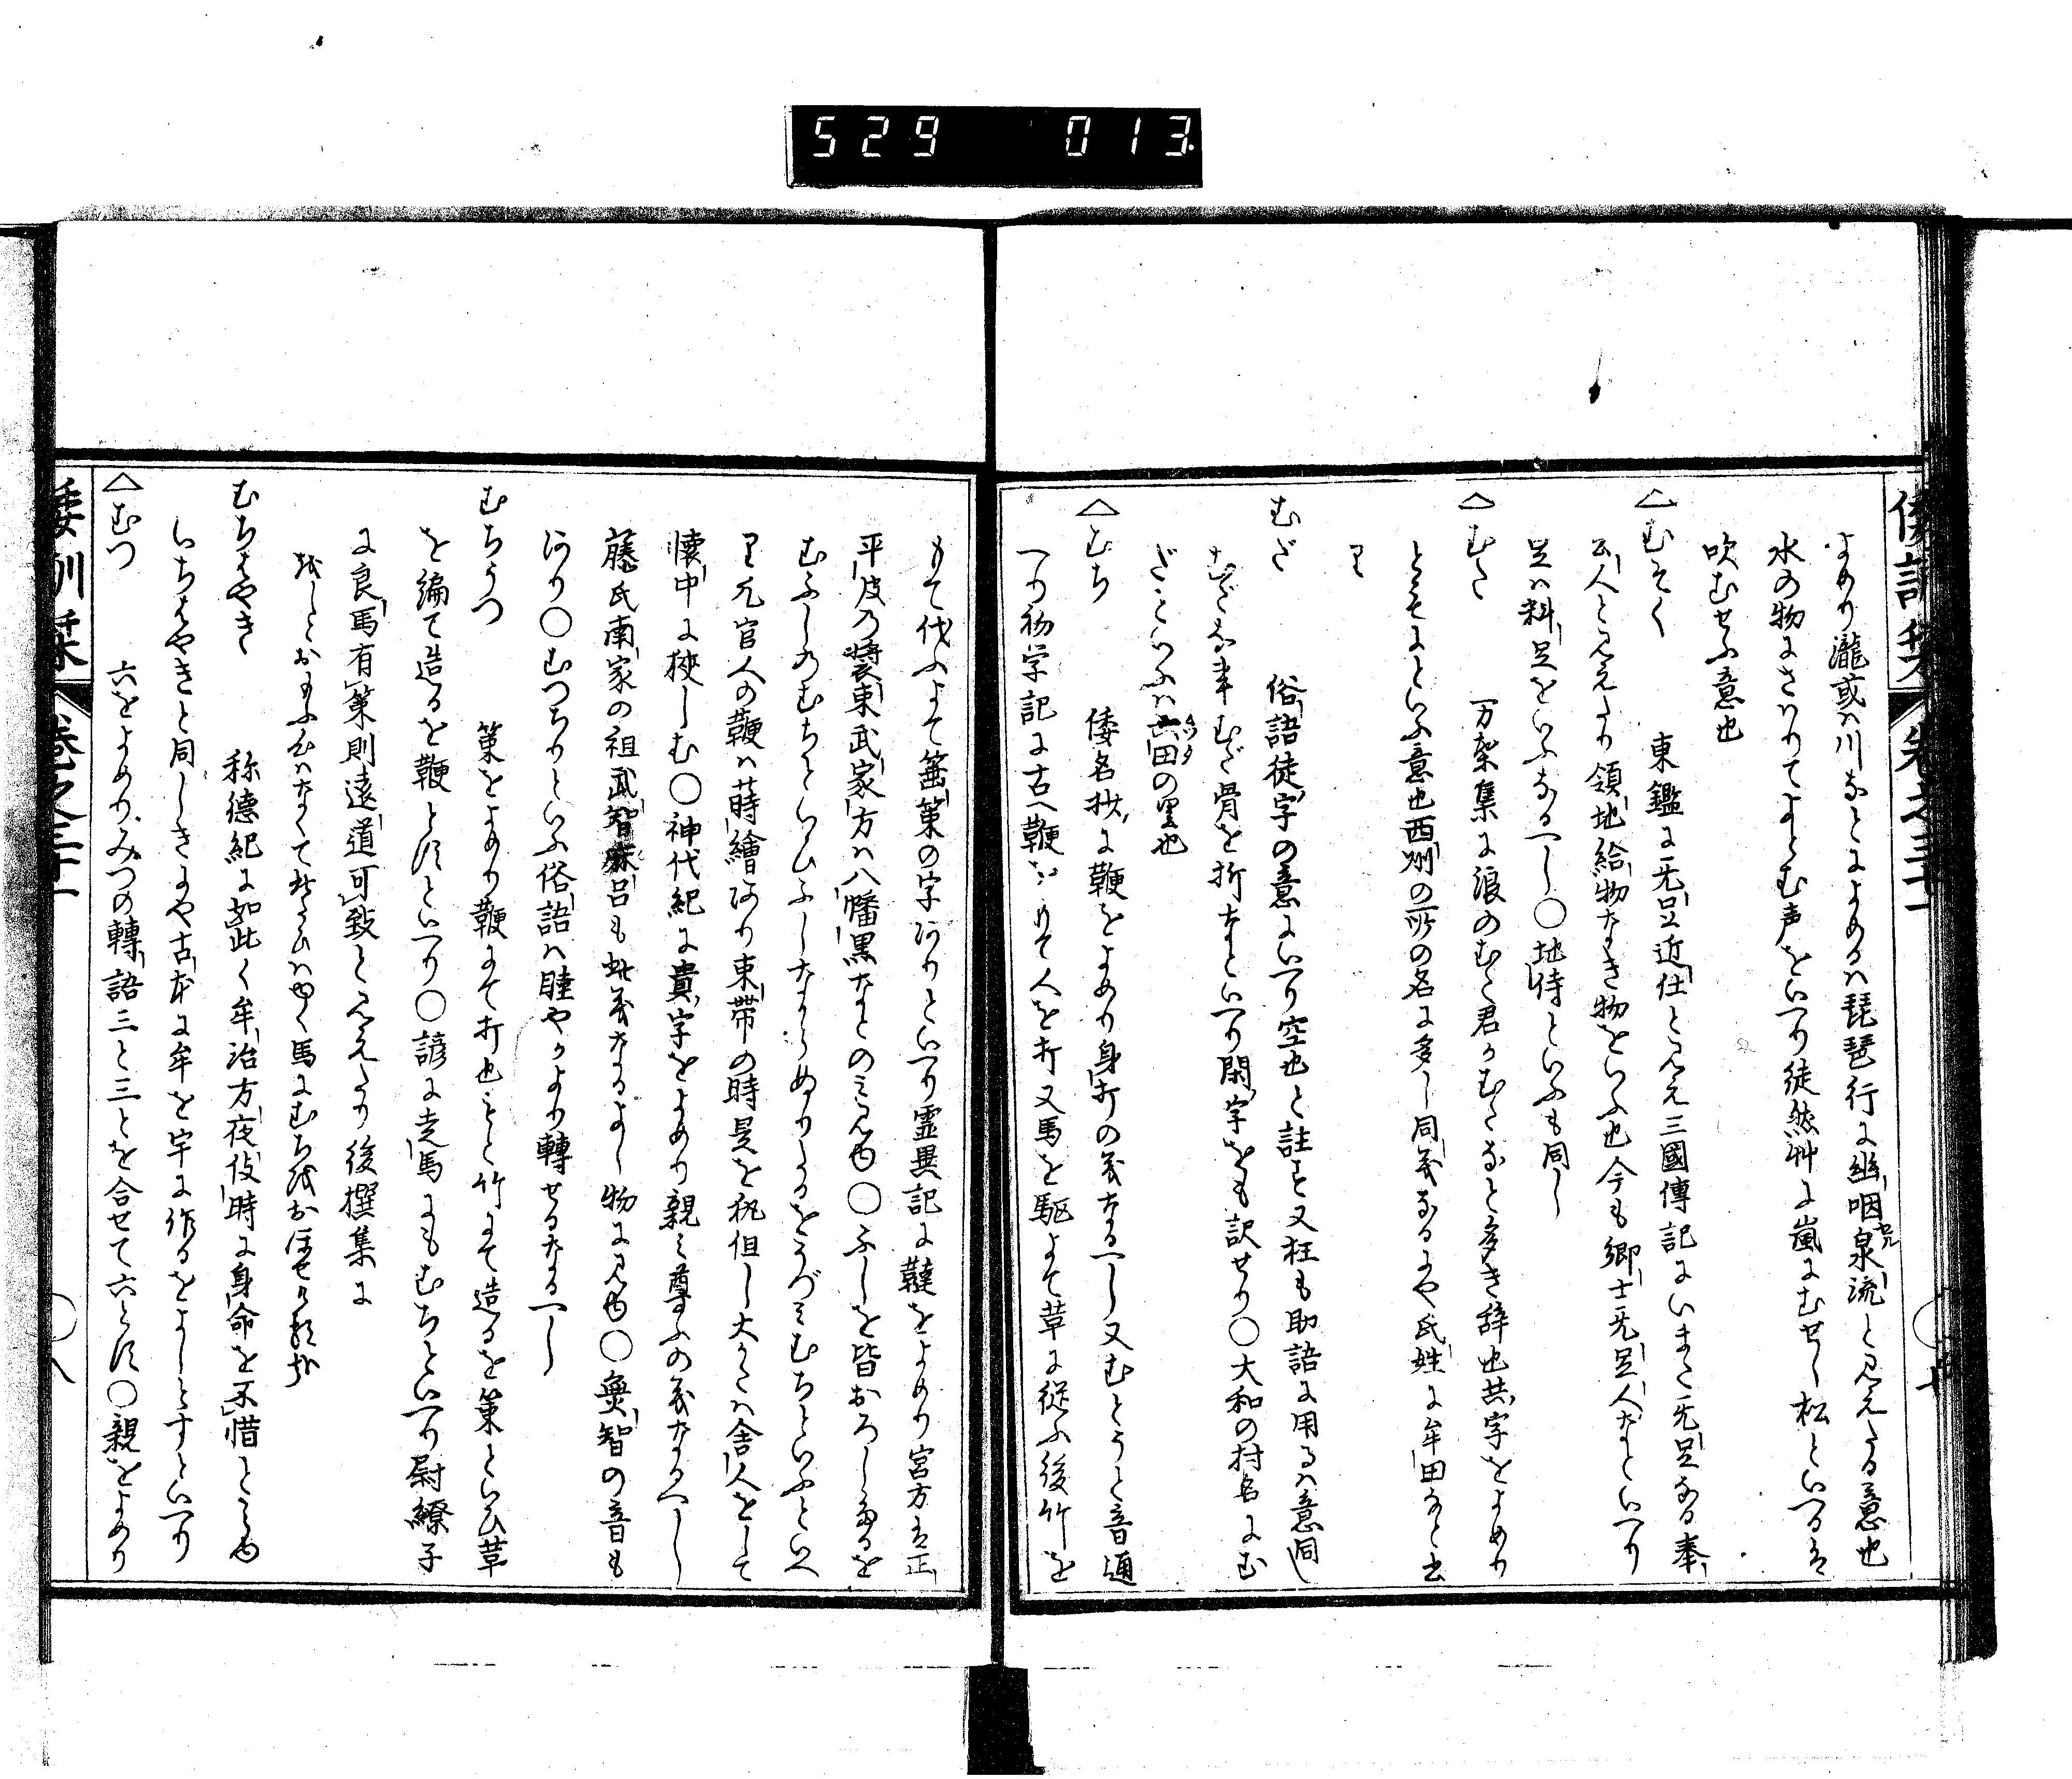 529 013
倭訓栞 巻之三十一
よめり瀧或ハ川なとによめるハ琵琶行に幽咽泉流と見えたる意也
水の物にさハりてよとむ声をいへり徒然艸に嵐にむせし松といへるは
吹むせふ意也
△むそく 東鑑に无足近仕と見え三國傳記にいまた无足なる奉
公人と見えたり領地給物なき物をいふ也今も郷士无足人なといへり
足ハ料足をいふなるへし〇地侍といふも同し
△むた 万葉集に浪のむた君かむたなと多き辞也共字をよめり
ともにといふ意也西州の所の名に多し同義なるにや氏姓に牟田なと出
り
むだ 俗語徒字の意にいへり空也と註す又枉も助語に用るハ意同し
むだ書むだ骨を折なといへり閑字をも訳せり〇大和の村名にむ
だといふハ六田の里也
△むち 倭名抄に鞭をよめり身打の義なるへし又むとうと音通
へり初学記に古ヘ鞭をもて人を打又馬を駆よて革に従ふ後竹を
もて代ふよて箠策の字ありといへり霊異記に韃をよめり宮方は正
平皮乃装束武家方ハ八幡黒なとのミ見ゆ〇ふしを皆おろしたるを
むふしのむちといひふしなからぬりたるをうづミむちといふといへ
り凡官人の鞭ハ蒔繪あり束帯の時是を執但し大かたハ舎人をして
懐中に挾しむ〇神代紀に貴字をよめり親ミ尊ふの義なるへし
藤氏南家の祖武智麻呂も此義なるよし物に見ゆ〇無智の音も
あり〇むつちりといふ俗語ハ睦やかより轉せるなるへし
むちうつ 策をよめり鞭にて打也もと竹にて造るを策といひ革
を編て造るを鞭とすといへり〇諺に走馬にもむちといへり尉繚子
に良馬有策則遠道可致と見えたり後撰集に
むちはやき 称徳紀に如此く牟治方夜伎時に身命を不惜と見ゆ
いちはやきと同しきにや古本に牟を宇に作るをよしとすといへり
△むつ 六をよめりみつの轉語三と三とを合せて六とす〇親をよめり
倭訓栞 巻之三十一
八